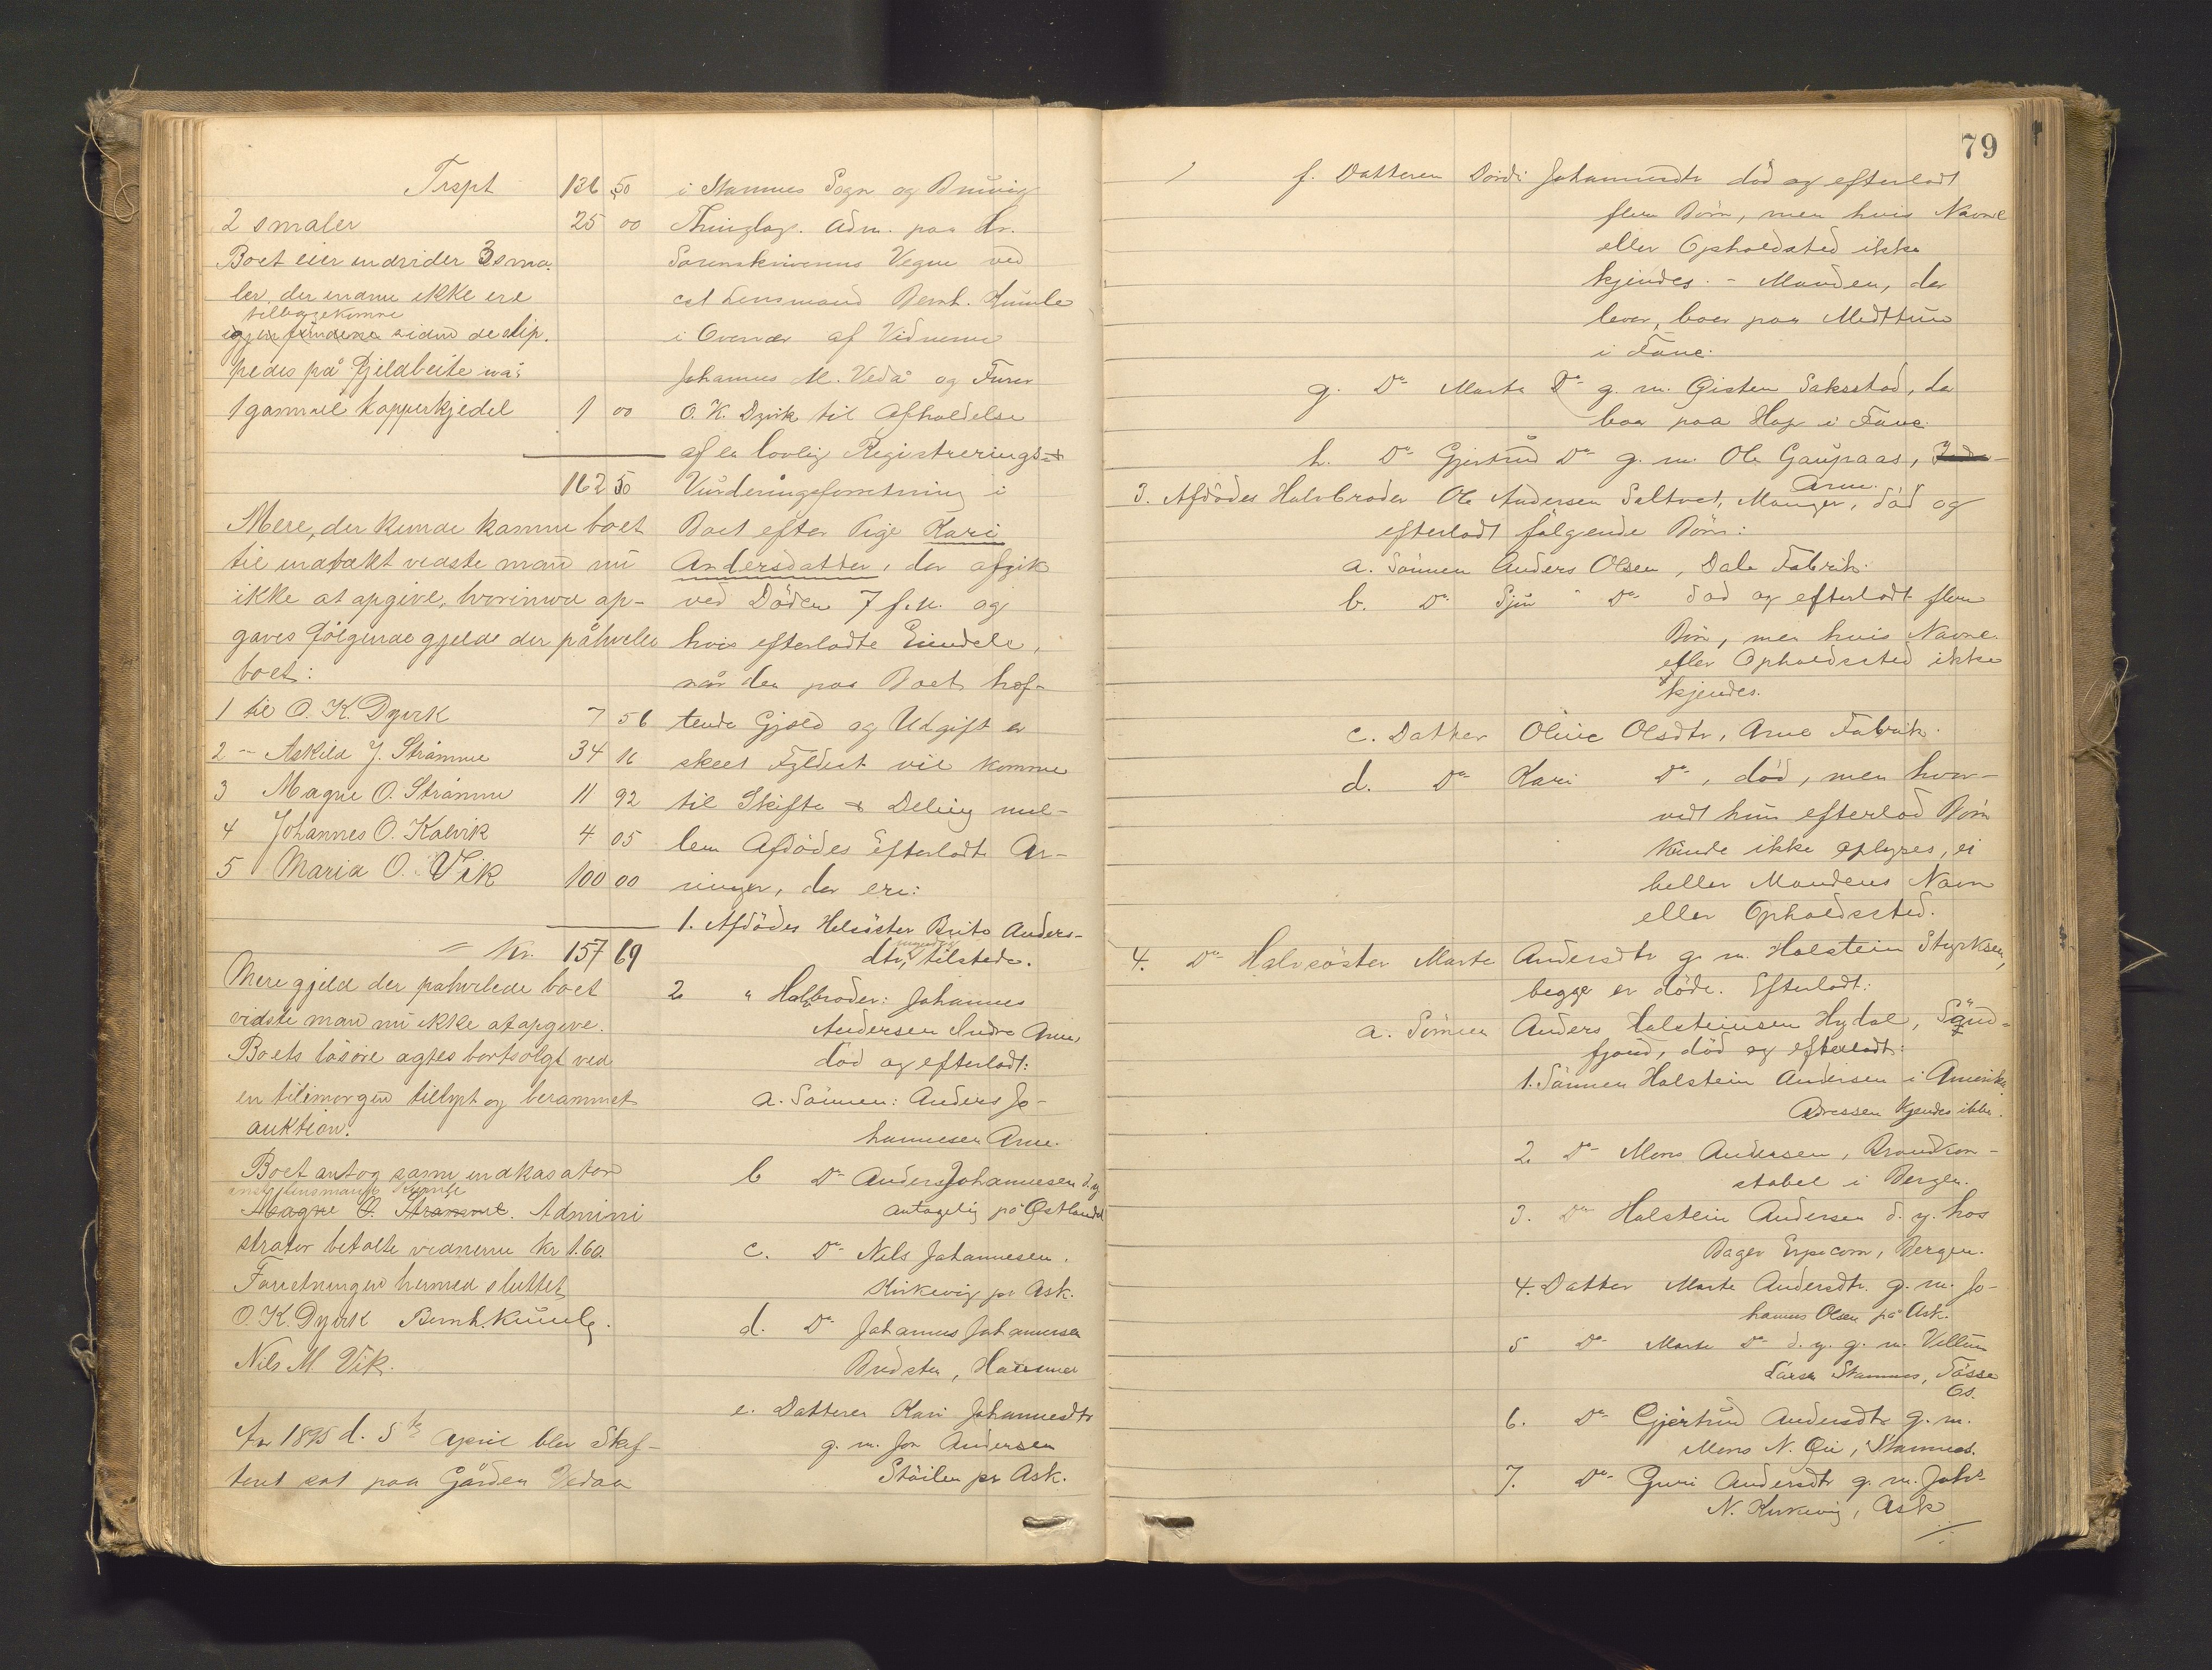 Trspt 136 50
2 smaler 25 00
Boet eier endvider 3 sma-
ler, der endnu ikke ere
tilbagekomne
igjenfundene siden de slip-
pedes på Fjeldbeite
1 gammel kopperkjedel 1 00
162 50
Mere, der kunde komme boet
til indtekt vidste man nu
ikke at opgive, hvorimod op-
gaves følgende gjeld der påhviler
boet:
1 til O. K. Dyvik 7 56
2 - Askild J. Strømme 34 16
3 Magne O. Strømme 11 92
4 Johannes O. Kalvik 4 05
5 Maria O. Vik 100 00
Kr. 157 69
Mere gjeld der påhvilede boet
vidste man nu ikke at opgive.
Boets løsøre agtes bortsolgt ved
en til imorgen tillyst og berammet
auktion.
Boet antog som indkasator
Lensmand Kunle
Magne O. Strømme. Admini
strator betalte vidnerne kr 1.60
Forretningen hermed sluttet
O. K. Dyvik Bernh. Kunle.
Nils M. Vik.
Aar 1895 d. 5te April blev Skif-
teret sat paa Gården Vedaa
i Stamnes Sogn og Bruvig
Thinglag. Adm. paa Hr.
Sorenskriverens Vegne ved
cst Lensmand Bernh. Kunle
i Overvær af Vidnerne
Johannes M. Vedå og Furer
O. K. Dyvik til Afholdelse
af en lovlig Registrerings- &
Vurderingsforretning i
Boet efter Pige Kari
Andersdatter, der afgik
ved Døden 7 f. M. og
hvis efterladte Eiendele,
når den paa Boet hef-
tende Gjæld og Udgift er
skeet Fyldest vil komme
til Skifte & Deling mel-
lem Afdødes efterladte Ar-
vinger, der ere:
1. Afdødes Helsøster Brita Anders-
dtr, myndig, tilstede.
2 " Halvbroder: Johannes
Andersen Indre Arne,
død og efterladt:
a. Sønnen: Anders Jo-
hannesen Arne.
b Do Anders Johannesen d. y.
antagelig på Østlandet
c. Do Nils Johannesen.
Kirkevig pr Ask.
d. Do Johannes Johannesen
Bredsten, Hammer
e. Datteren Kari Johannesdtr
g. m. Jon Andersen
Støilen pr Ask.
79
f. Datteren Dordi Johannesdtr død og efterladt
flere Børn, men hvis Navne
eller Opholdsted ikke
kjendes. - Manden, der
lever, boer paa Midttun
i Fane.
g. Do Marta Do g. m. Øisten Saksstad, der
boer paa Hop i Fane.
h. Do Gjertrud Do g. m. Ole Gaupaas,
Arne.
3. Afdødes Halvbroder Ole Andersen Saltvet, Manger, død og
efterladt følgende Børn:
a. Sønnen Anders Olsen, Dale Fabrik.
b. Do Sjur " Do død og efterladt flere
Børn, men hvis Navne
eller Opholdssted ikke
kjendes.
c. Datter Oline Olsdtr, Arne Fabrik.
d. Do Kari Do, død, men hvor-
vidt hun efterlod Børn
kunde ikke oplyses, ei
heller Mandens Navn
eller Opholdssted.
4. Do Halvsøster Marte Andersdtr g. m. Holstein Styrksen,
begge er døde. Efterladt:
a. Sønnen Anders Holsteinsen Hydal, Sønd-
fjord, død og efterladt:
1. Sønnen Holstein Andersen i Amerika.
Adressen kjendes ikke.
2. Do Mons Andersen, Brandkon-
stabel i Bergen.
3. Do Holstein Andersen d. y. hos
Bager Erpecom, Bergen.
4. Datter Marte Andersdtr. g. m. Jo-
hannes Olsen på Ask.
5 Do Marte Do d. y. g. m. Villum
Larsen Stamnes, Tøsse
Gs.
6. Do Gjertrud Andersdtr g. m.
Mons N. Øie, Stamnes.
7. Do Guri Andersdtr g. m. Johs
N. Kirkevig, Ask